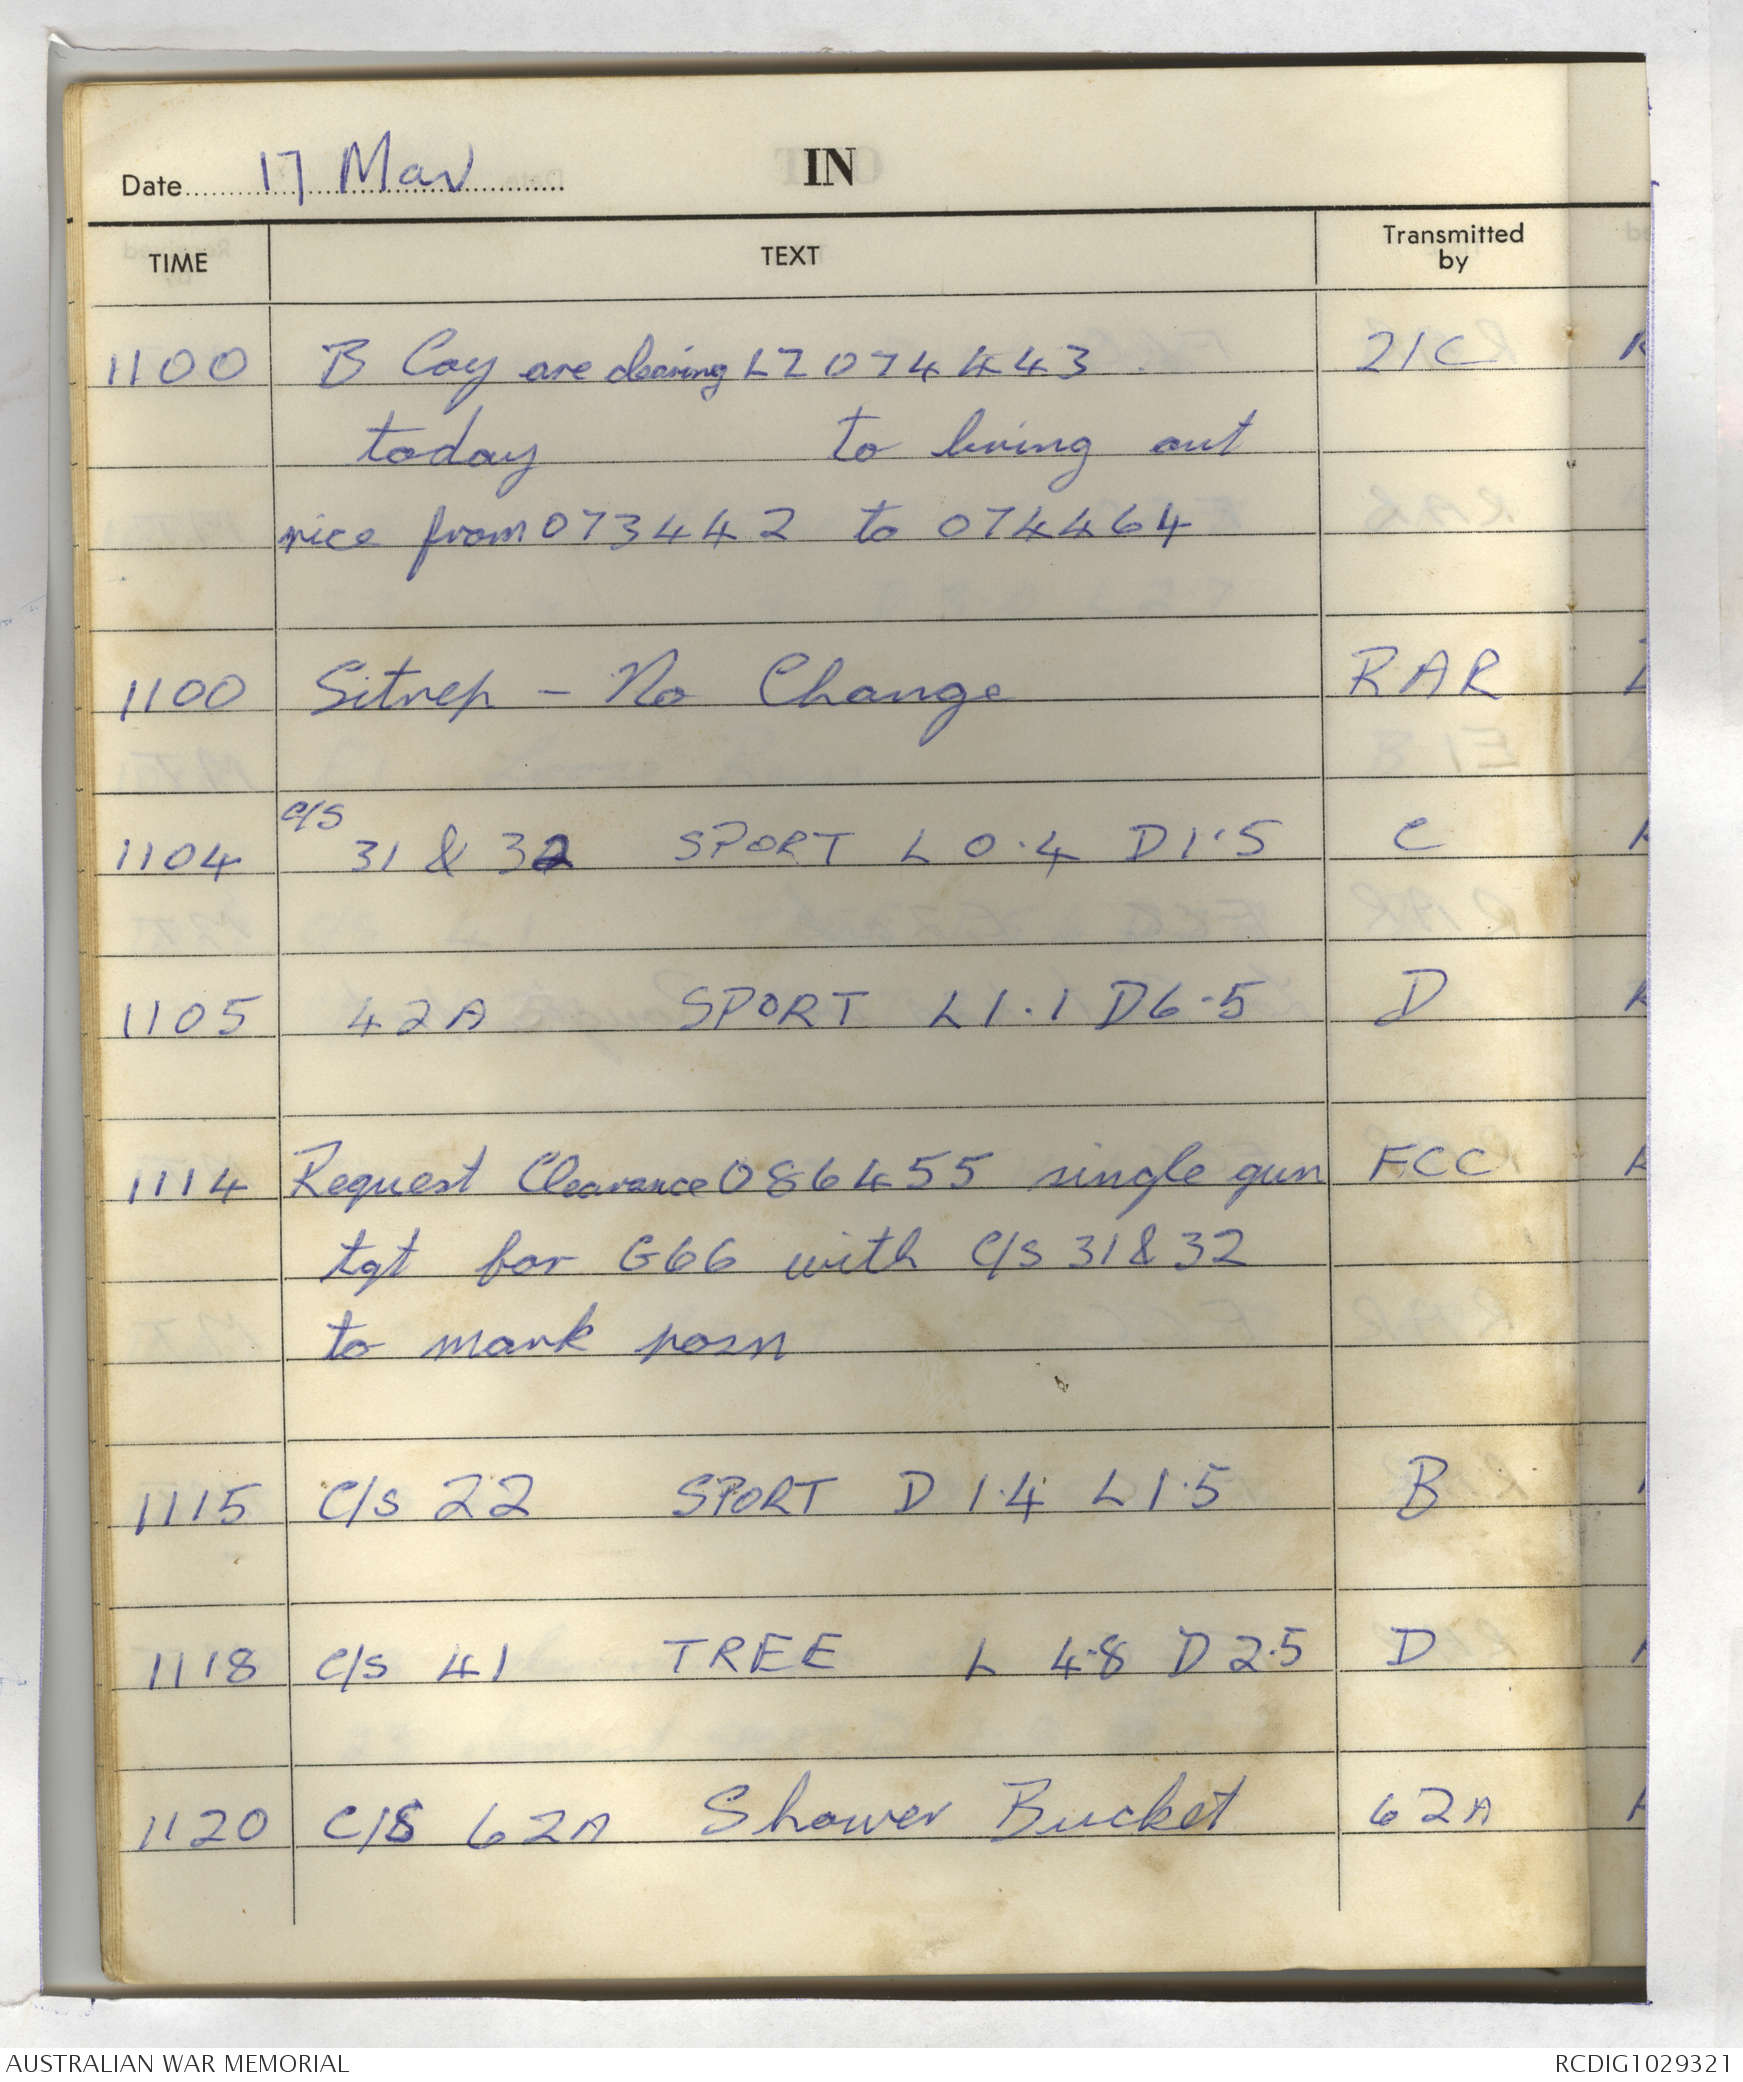 Date 17 Mar
IN
TIME TEXT Transmitted by
1100 B Coy are clearing LZ 074443 21C
today to bring out
rice from 073442 to 074464
1100 Sitrep - No Change RAR
1104 c/s 31 & 32 SPORT L 0.4 D 1.5 C
1105 42A SPORT L 1.1 D 6.5 D
1114 Request Clearance 086455 single gun FCC
tgt for G66 with C/S 31 & 32
to mark posn
1115 C/S 22 SPORT D 1.4 L 1.5 B
1118 C/S 41 TREE L 4.8 D 2.5 D
1120 C/S 62A Shower Bucket 62A
AUSTRALIAN WAR MEMORIAL RCDIG1029321